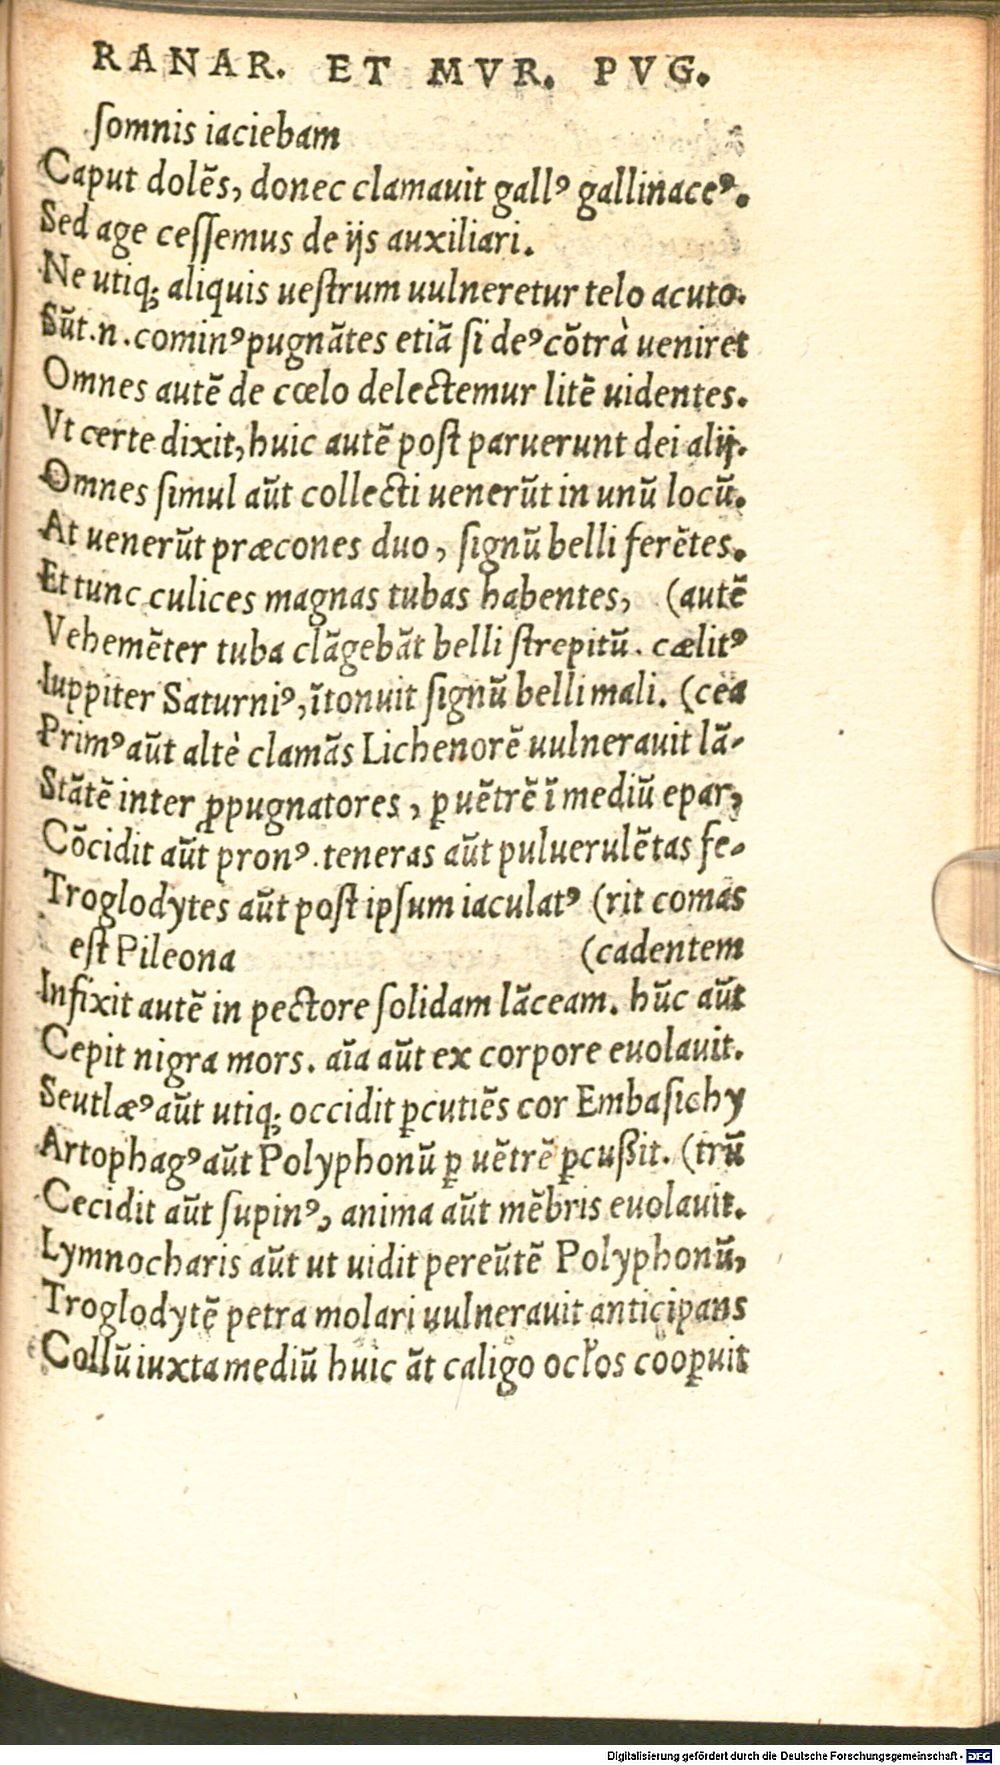 RANAR. ET MVR. PVG.
ſomnis iaciebam
Caput dolẽs, donec clamauit gallꝰ gallinaceꝰ.
Sed age ceſſemus de ijs auxiliari.
Ne utiq; aliquis ueſtrum uulneretur telo acuto.
Sũt.n.cominꝰpugnãtes etiã ſi deꝰcõtrà ueniret
Omnes autẽ de cœlo delectemur litẽ uidentes.
Vt certe dixit, huic autẽ poſt paruerunt dei alij.
Omnes ſimul aũt collecti uenerũt in unũ locũ.
At uenerũt præcones duo, ſignũ belli ferẽtes.
Et tunc culices magnas tubas habentes, (autẽ
Vehemẽter tuba clãgebãt belli ſtrepitũ. cælitꝰ
Iuppiter Saturniꝰ, ĩtonuit ſignũ belli mali. (cea
Primꝰ aũt altè clamãs Lichenorẽ uulnerauit lã-
Stãtẽ inter ꝓpugnatores, ꝑ uẽtrẽ ĩ mediũ epar,
Cõcidit aũt pronꝰ. teneras aũt puluerulẽtas fe-
Troglodytes aũt poſt ipſum iaculatꝰ (rit comas
eſt Pileona (cadentem
Infixit autẽ in pectore ſolidam lãceam. hũc aũt
Cepit nigra mors. aĩa aũt ex corpore euolauit.
Seutlæꝰ aũt utiq; occidit ꝑcutiẽs cor Embaſichy
Artophagꝰ aũt Polyphonũ ꝑ uẽtrẽ ꝑcußit. (trũ
Cecidit aũt ſupinꝰ, anima aũt mẽbris euolauit.
Lymnocharis aũt ut uidit pereũtẽ Polyphonũ,
Troglodytẽ petra molari uulnerauit anticipans
Collũ iuxta mediũ huic ãt caligo ocłos cooꝑuit
Digitalisierung gefördert durch die Deutsche Forschungsgemeinschaft - DFG